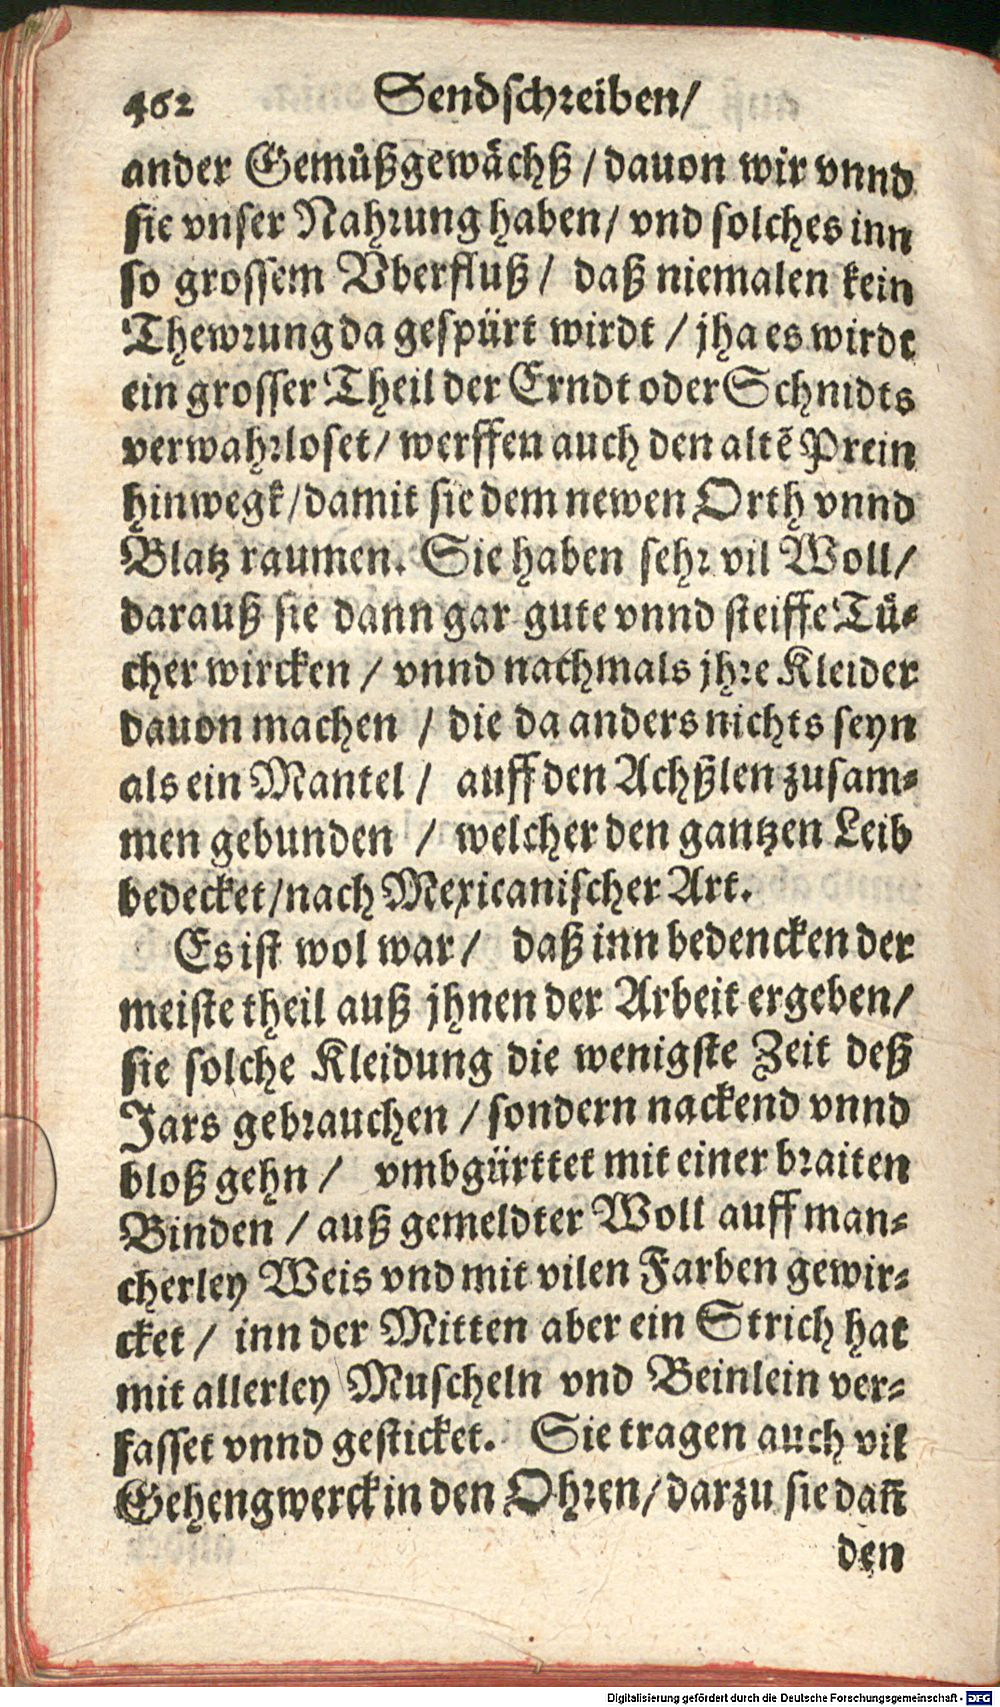 462 Sendschreiben/
ander Gemüßgewächß / dauon wir vnnd
sie vnser Nahrung haben/ vnd solches inn
so grossem Vberfluß / daß niemalen kein
Thewrung da gespürt wirdt / jha es wirdt
ein grosser Theil der Erndt oder Schnidts
verwahrloset/ werffen auch den altẽ Prein
hinwegk/damit sie dem newen Orth vnnd
Blatz raumen. Sie haben sehr vil Woll/
darauß sie dann gar gute vnnd steiffe Tü-
cher wircken / vnnd nachmals jhre Kleider
dauon machen / die da anders nichts seyn
als ein Mantel / auff den Achßlen zusam-
men gebunden / welcher den gantzen Leib
bedecket/nach Mexicanischer Art.
Es ist wol war/ daß inn bedencken der
meiste theil auß jhnen der Arbeit ergeben/
sie solche Kleidung die wenigste Zeit deß
Jars gebrauchen / sondern nackend vnnd
bloß gehn / vmbgürttet mit einer braiten
Binden / auß gemeldter Woll auff man-
cherley Weis vnd mit vilen Farben gewir-
cket / inn der Mitten aber ein Strich hat
mit allerley Muscheln vnd Beinlein ver-
fasset vnnd gesticket. Sie tragen auch vil
Gehengwerck in den Ohren/darzu sie dañ
den
Digitalisierung gefördert durch die Deutsche Forschungsgemeinschaft - DFG